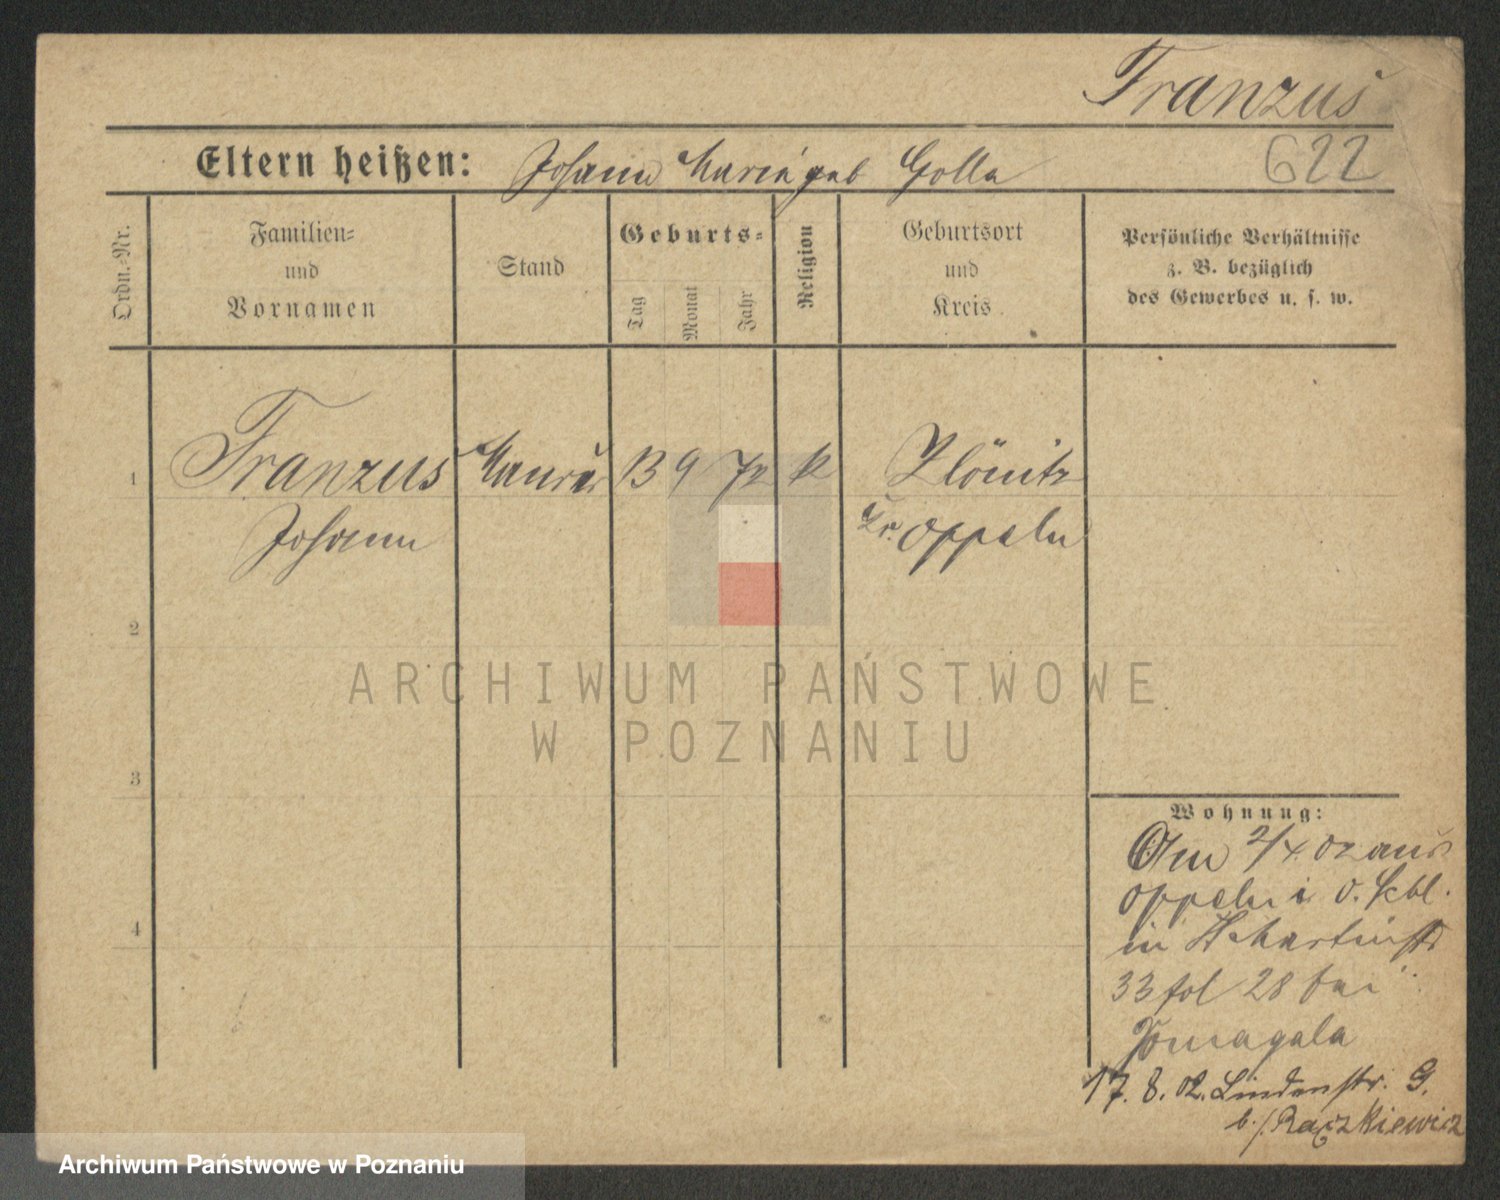 Franzus
622
Eltern heißen: Johann Marie geb Golla
Ordn.-Nr.
Familien-
und
Vornamen
Stand
Geburts-
Tag
Monat
Jahr
Religion
Geburtsort
und
Kreis
Persönliche Verhältnisse
z. B. bezüglich
des Gewerbes u. s. w.
1 Franzus Maurer 13 9 72 k Zlönitz
Johann Kr. Oppeln
2
3
4
Wohnung:
Am 2/4 02 aus
Oppeln i. O. Schl.
in St. Martinstr
33 fol 28 bei
Domagala
17. 8. 02. Lindenstr. 9.
b./ Raczkiewicz
ARCHIWUM PAŃSTWOWE
W POZNANIU
Archiwum Państwowe w Poznaniu